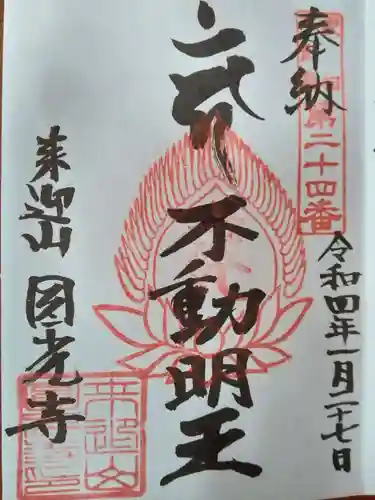 奉納
第二十四番
令和四年一月二十七日
不動明王
来迎山
圓光寺
来迎山